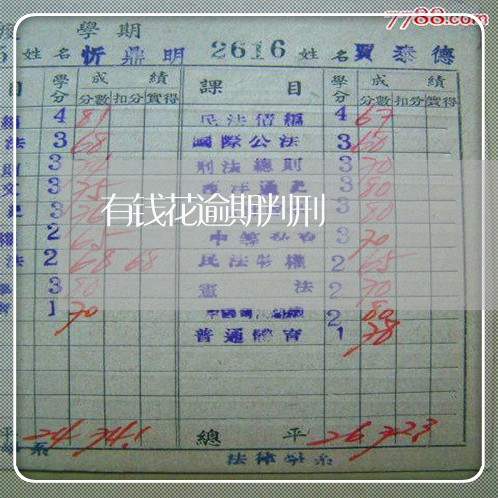 7788.com
學期
姓名 忻鼎明 2616 姓名 賈泰德
目 學分 成績 課目 學分 成績
分數 扣分 實得 分數 扣分 實得
4 81 民法債編 4 67
法 3 68 國際公法 3 60
3 刑法總則 3 70
3 75 西洋通史 3 80
3 3 80
有钱花逾期判刑
2 65 3 70
法 2 68 68 民法物權 2 65
3 80 憲法 2 70
1 70 2 80
普通體育 1 78
平 24 74.1 總平 26 72.3
系 法律學系